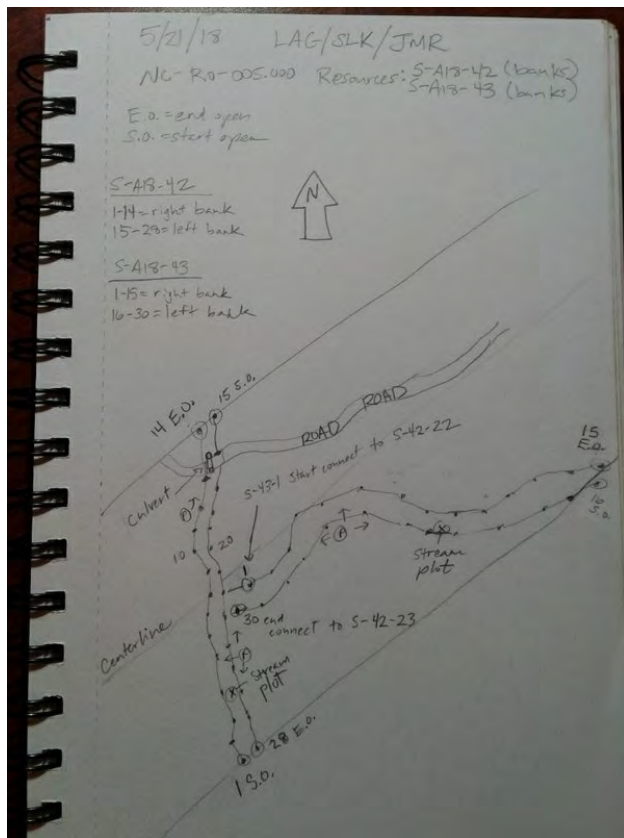 5/21/18 LAG/SLK/JMR
NC-RO-005.000 Resources: S-A18-42 (banks)
S-A18-43 (banks)
E.O. = end open
S.O. = start open
S-A18-42
1-14 = right bank
15-28 = left bank
N
S-A18-43
1-15 = right bank
16-30 = left bank
14 E.O.
15 S.O.
ROAD
ROAD
Culvert
S-43-1 Start connect to S-42-22
15
E.O.
16
S.O.
P
10
20
P
Stream
plot
1
30 end
connect to S-42-23
Centerline
P
Stream
plot
28 E.O.
1 S.O.